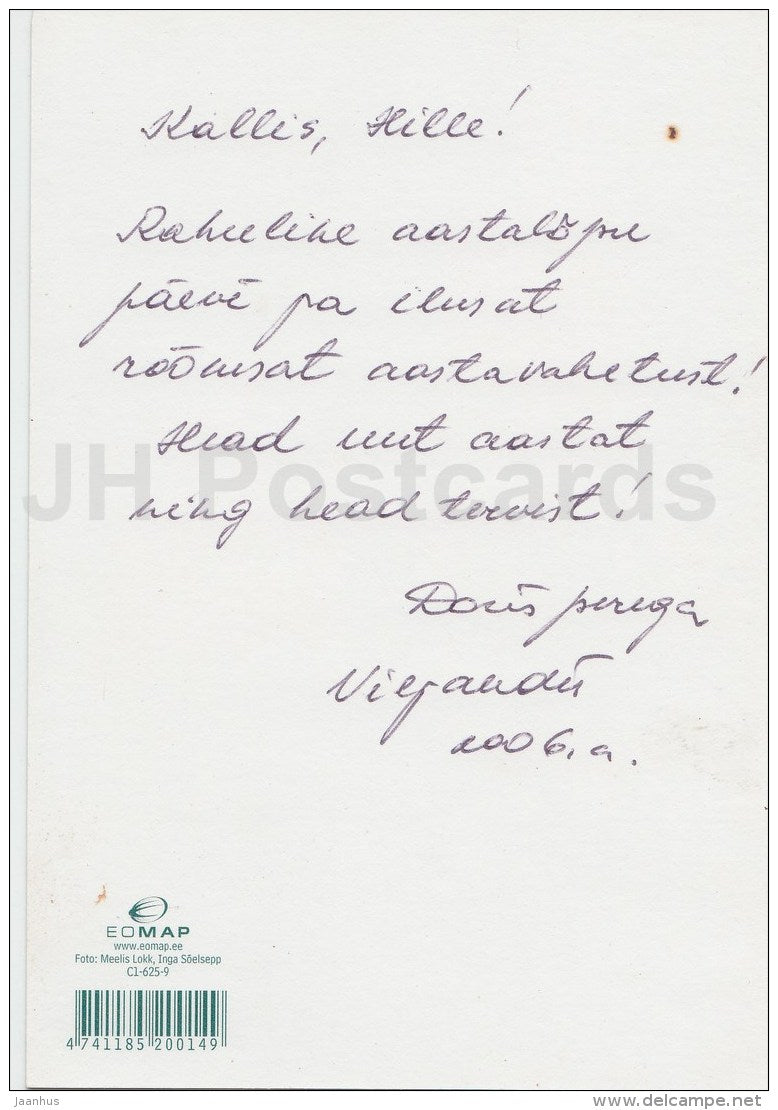 Kallis, Hille!
Rahulike aastalõpu
päevi ja ilusat
rõõmsat aastavahetust!
Head uut aastat
ning head tervist!
Doris perega
Viljandi
2006.a.
JH Postcards
EOMAP
www.eomap.ee
Foto: Meelis Lokk, Inga Sõelsepp
C1-625-9
4 741185 200149
Jaanhus
www.delcampe.net